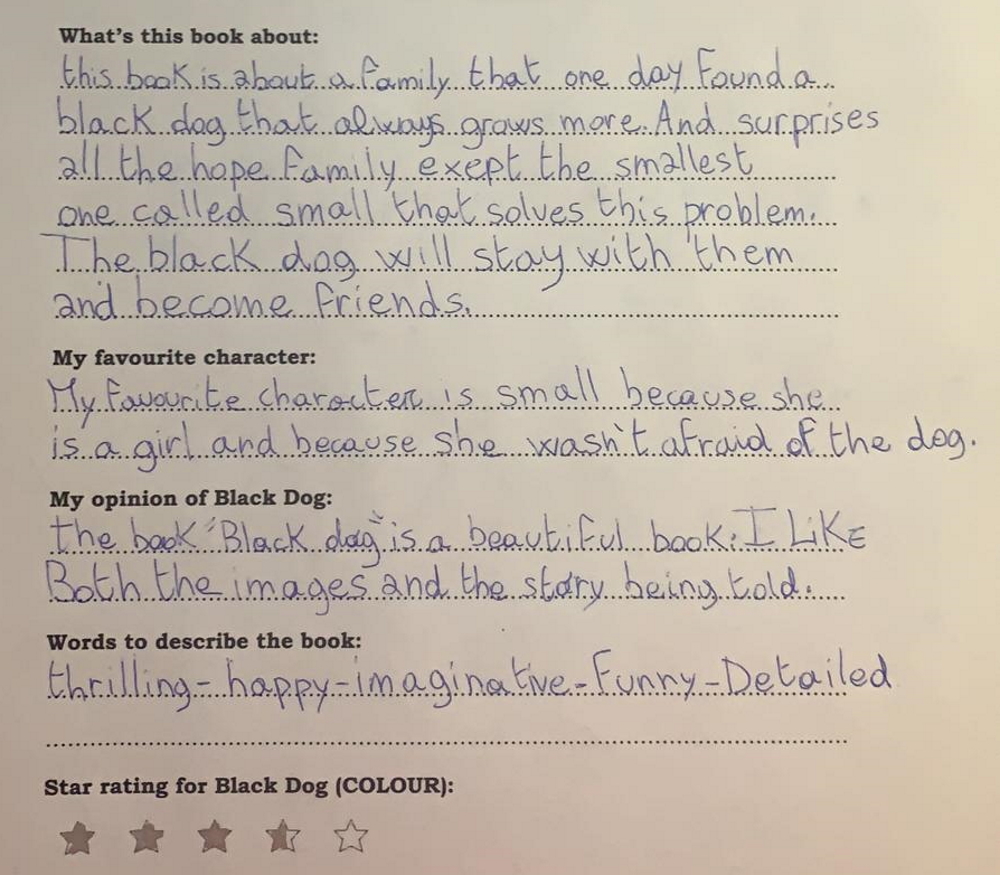 What's this book about:
this book is about a family that one day found a
black dog that always grows more. And surprises
all the hope family exept the smallest
one called small that solves this problem.
The black dog will stay with them
and become friends.
My favourite character:
My favourite character is small because she
is a girl and because she wasn't afraid of the dog.
My opinion of Black Dog:
the book "Black dog" is a beautiful book. I LIKE
Both the images and the story being told.
Words to describe the book:
thrilling - happy - imaginative - Funny - Detailed
Star rating for Black Dog (COLOUR):